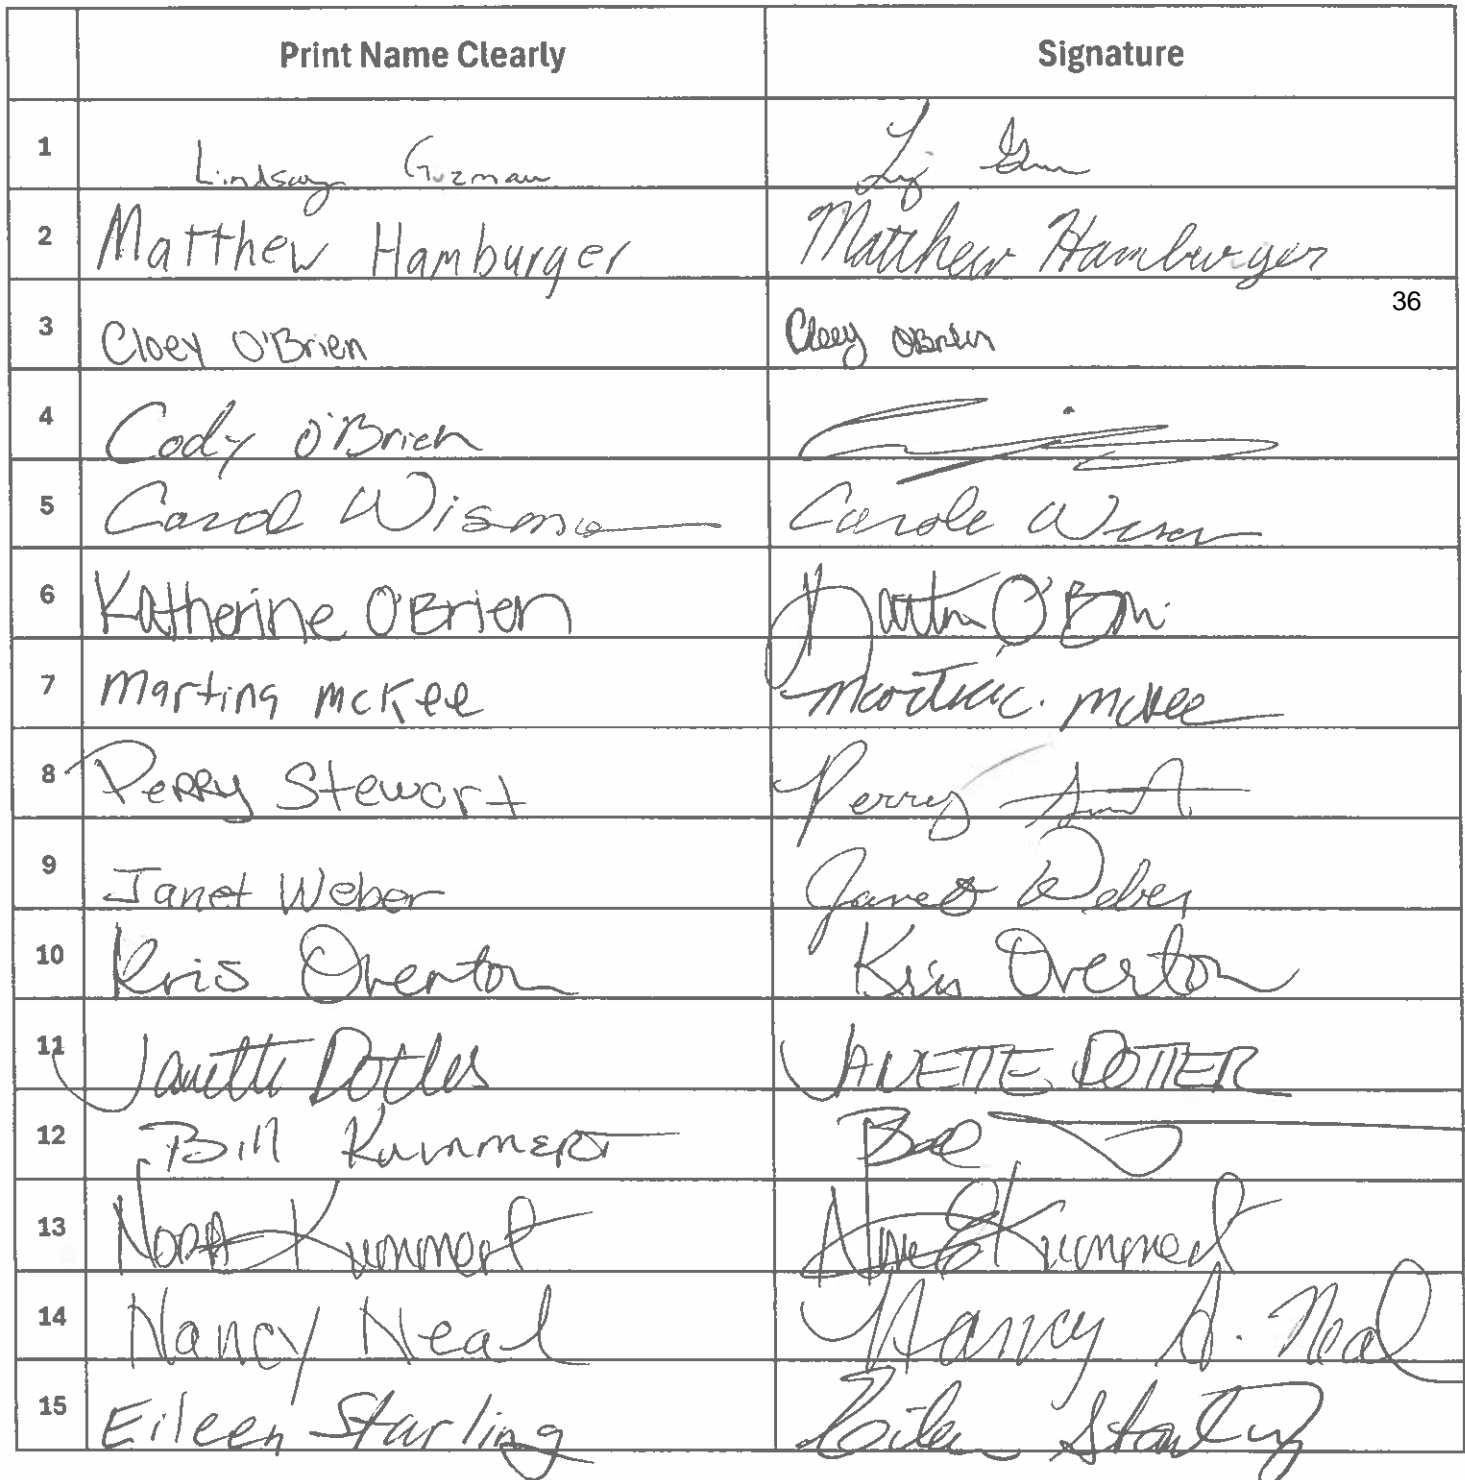 Print Name Clearly Signature
1 Lindsay Guzman
2 Matthew Hamburger Matthew Hamburger
36
3 Cloey O'Brien Cloey OBrien
4 Cody O'Brien
5 Carol Wisman Carole
6 Katherine O'Brien O'B
7 Martina McKee Martina McKee
8 Perry Stewart Perry
9 Janet Weber Janet Weber
10 Kris Overton Kris Overton
11 Janette Dotter JANETTE DOTTER
12 Bill Kummert Bill
13 Nora Kummert Kummert
14 Nancy Neal Nancy S. Neal
15 Eileen Starling Eileen Starling